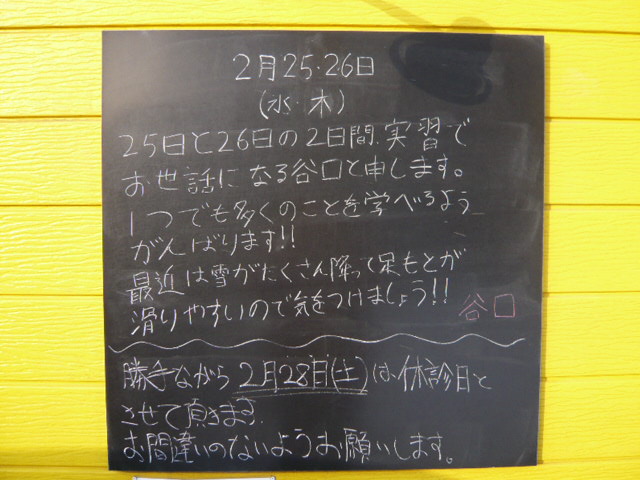 2月25・26日
(水・木)
25日と26日の2日間、実習で
お世話になる谷口と申します。
1つでも多くのことを学べるよう
がんばります!!
最近は雪がたくさん降って足もとが
滑りやすいので気をつけましょう!!
谷口
勝手ながら2月28日(土)は、休診日と
させて頂きます。
お間違いのないようお願いします。